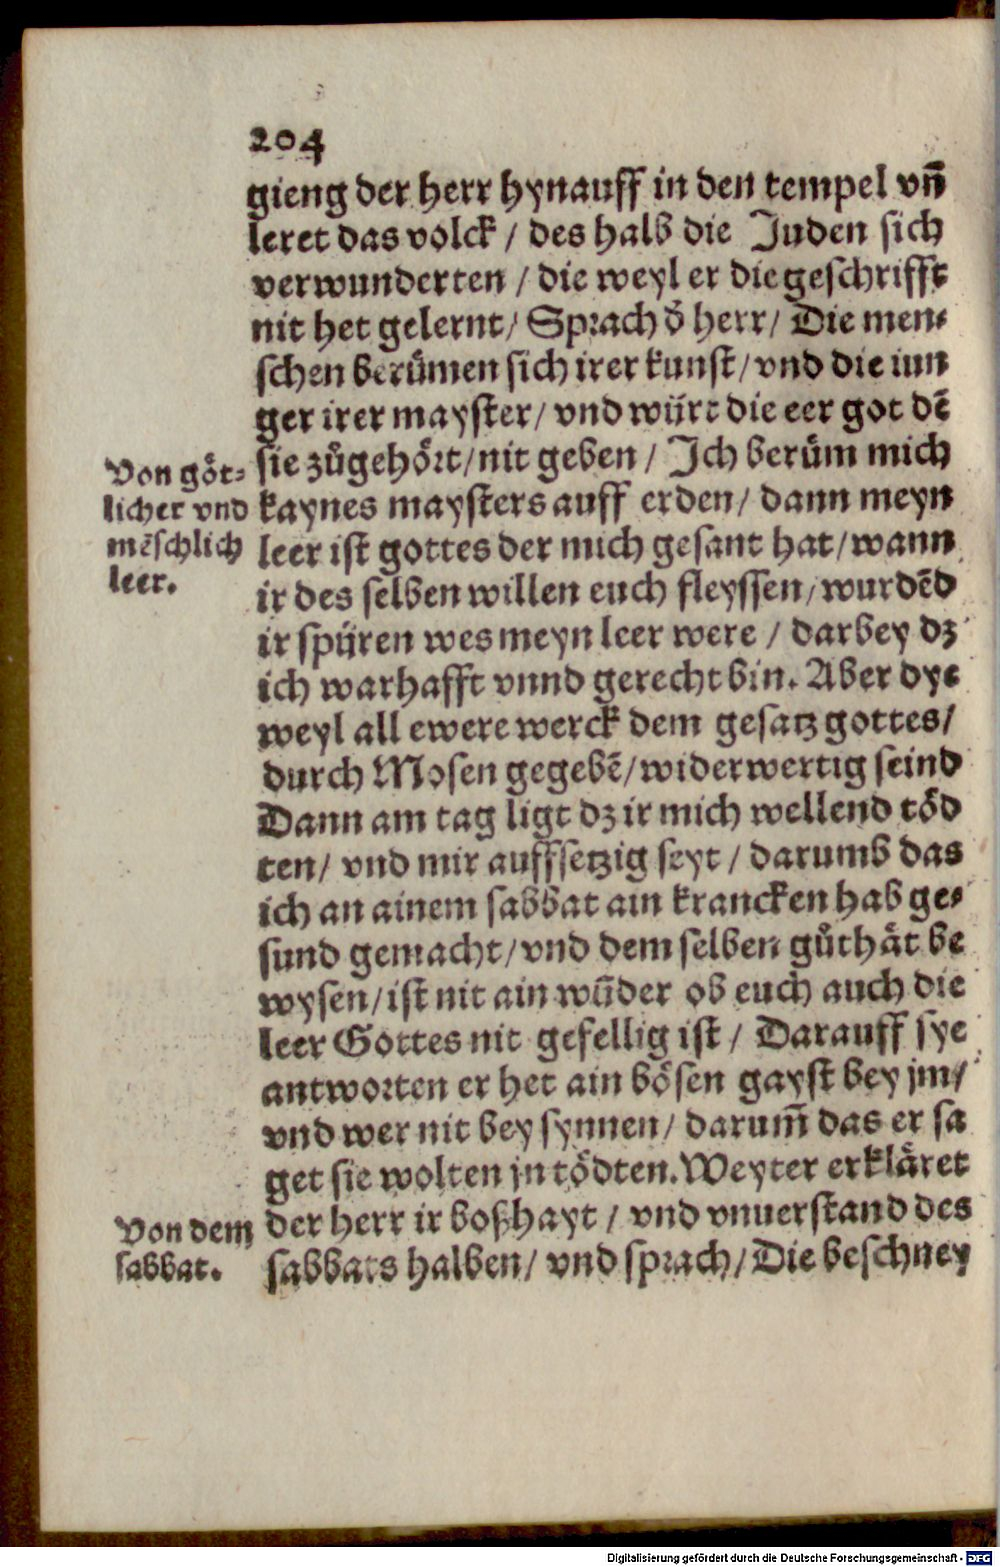 204
gieng der herr hynauff in den tempel vn̄
leret das volck / des halb die Juden sich
verwunderten / die weyl er die geschrifft
nit het gelernt / Sprach d̕ herr / Die men⸗
schen berümen sich irer kunst / vnd die iun
ger irer mayster / vnd würt die eer got dē
sie zůgehört / nit geben / Ich berüm mich
Von göt⸗
licher vnd
mēschlich
leer.
kaynes maysters auff erden / dann meyn
leer ist gottes der mich gesant hat / wann
ir des selben willen euch fleyssen / wurdēd
ir spüren wes meyn leer were / darbey dz
ich warhafft vnnd gerecht bin. Aber dye
weyl all ewere werck dem gesatz gottes /
durch Mosen gegebē / widerwertig seind
Dann am tag ligt dz ir mich wellend töd
ten / vnd mir auffsetzig seyt / darumb das
ich an ainem sabbat ain krancken hab ge⸗
sund gemacht / vnd dem selben gůthät be
wysen / ist nit ain wūder ob euch auch die
leer Gottes nit gefellig ist / Darauff sye
antworten er het ain bösen gayst bey jm /
vnd wer nit bey synnen / darum̄ das er sa
get sie wolten jn tödten. Weyter erkläret
der herr ir boßhayt / vnd vnuerstand des
sabbats halben / vnd sprach / Die beschney
Von dem
sabbat.
Digitalisierung gefördert durch die Deutsche Forschungsgemeinschaft - DFG